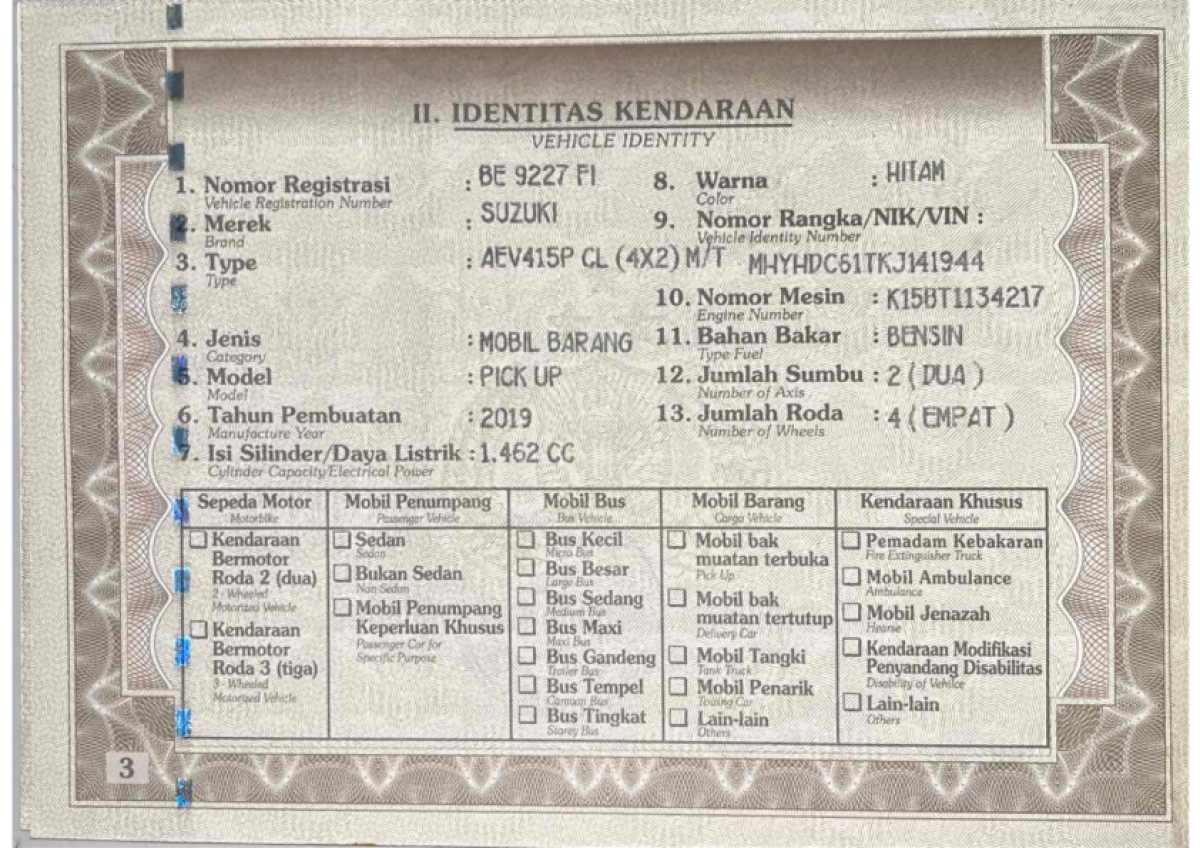 II. IDENTITAS KENDARAAN
VEHICLE IDENTITY
1. Nomor Registrasi : BE 9227 FI
Vehicle Registration Number
2. Merek : SUZUKI
Brand
3. Type : AEV415P CL (4X2) M/T
Type
4. Jenis : MOBIL BARANG
Category
5. Model : PICK UP
Model
6. Tahun Pembuatan : 2019
Manufacture Year
7. Isi Silinder/Daya Listrik : 1.462 CC
Cylinder Capacity/Electrical Power
8. Warna : HITAM
Color
9. Nomor Rangka/NIK/VIN :
Vehicle Identity Number
MHYHDC61TKJ141944
10. Nomor Mesin : K15BT1134217
Engine Number
11. Bahan Bakar : BENSIN
Type Fuel
12. Jumlah Sumbu : 2 ( DUA )
Number of Axis
13. Jumlah Roda : 4 ( EMPAT )
Number of Wheels
Sepeda Motor
Motorbike
Kendaraan
Bermotor
Roda 2 (dua)
2 - Wheeled
Motorized Vehicle
Kendaraan
Bermotor
Roda 3 (tiga)
3 - Wheeled
Motorized Vehicle
Mobil Penumpang
Passenger Vehicle
Sedan
Sedan
Bukan Sedan
Non Sedan
Mobil Penumpang
Keperluan Khusus
Passenger Car for
Specific Purpose
Mobil Bus
Bus Vehicle
Bus Kecil
Micro Bus
Bus Besar
Large Bus
Bus Sedang
Medium Bus
Bus Maxi
Maxi Bus
Bus Gandeng
Trailer Bus
Bus Tempel
Caravan Bus
Bus Tingkat
Storey Bus
Mobil Barang
Cargo Vehicle
Mobil bak
muatan terbuka
Pick Up
Mobil bak
muatan tertutup
Delivery Car
Mobil Tangki
Tank Truck
Mobil Penarik
Towing Car
Lain-lain
Others
Kendaraan Khusus
Special Vehicle
Pemadam Kebakaran
Fire Extinguisher Truck
Mobil Ambulance
Ambulance
Mobil Jenazah
Hearse
Kendaraan Modifikasi
Penyandang Disabilitas
Disability of Vehilce
Lain-lain
Others
3